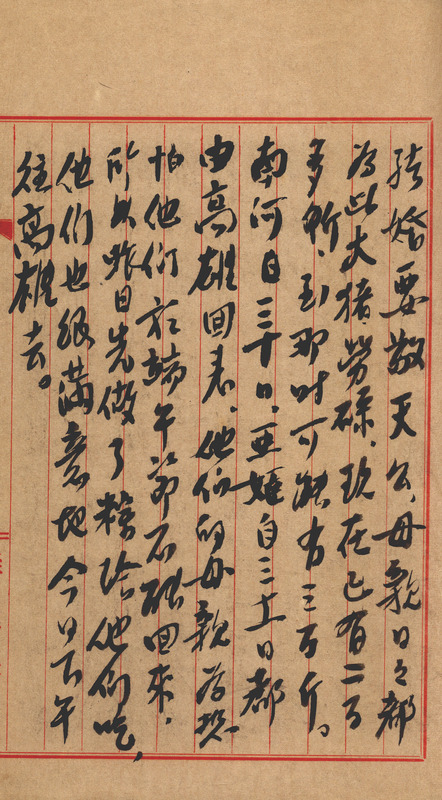 結婚要敬天公,母親日々都
為此大猪勞碌,現在已有二百
多斤,到那时可能有三百斤。
南河日三十日,自二十日都
由高雄回来,他们的母親為恐
怕他们於端午節不能回來,
所以昨日先做了粽給他们吃,
他们也很滿意地今日下午
往高雄去。